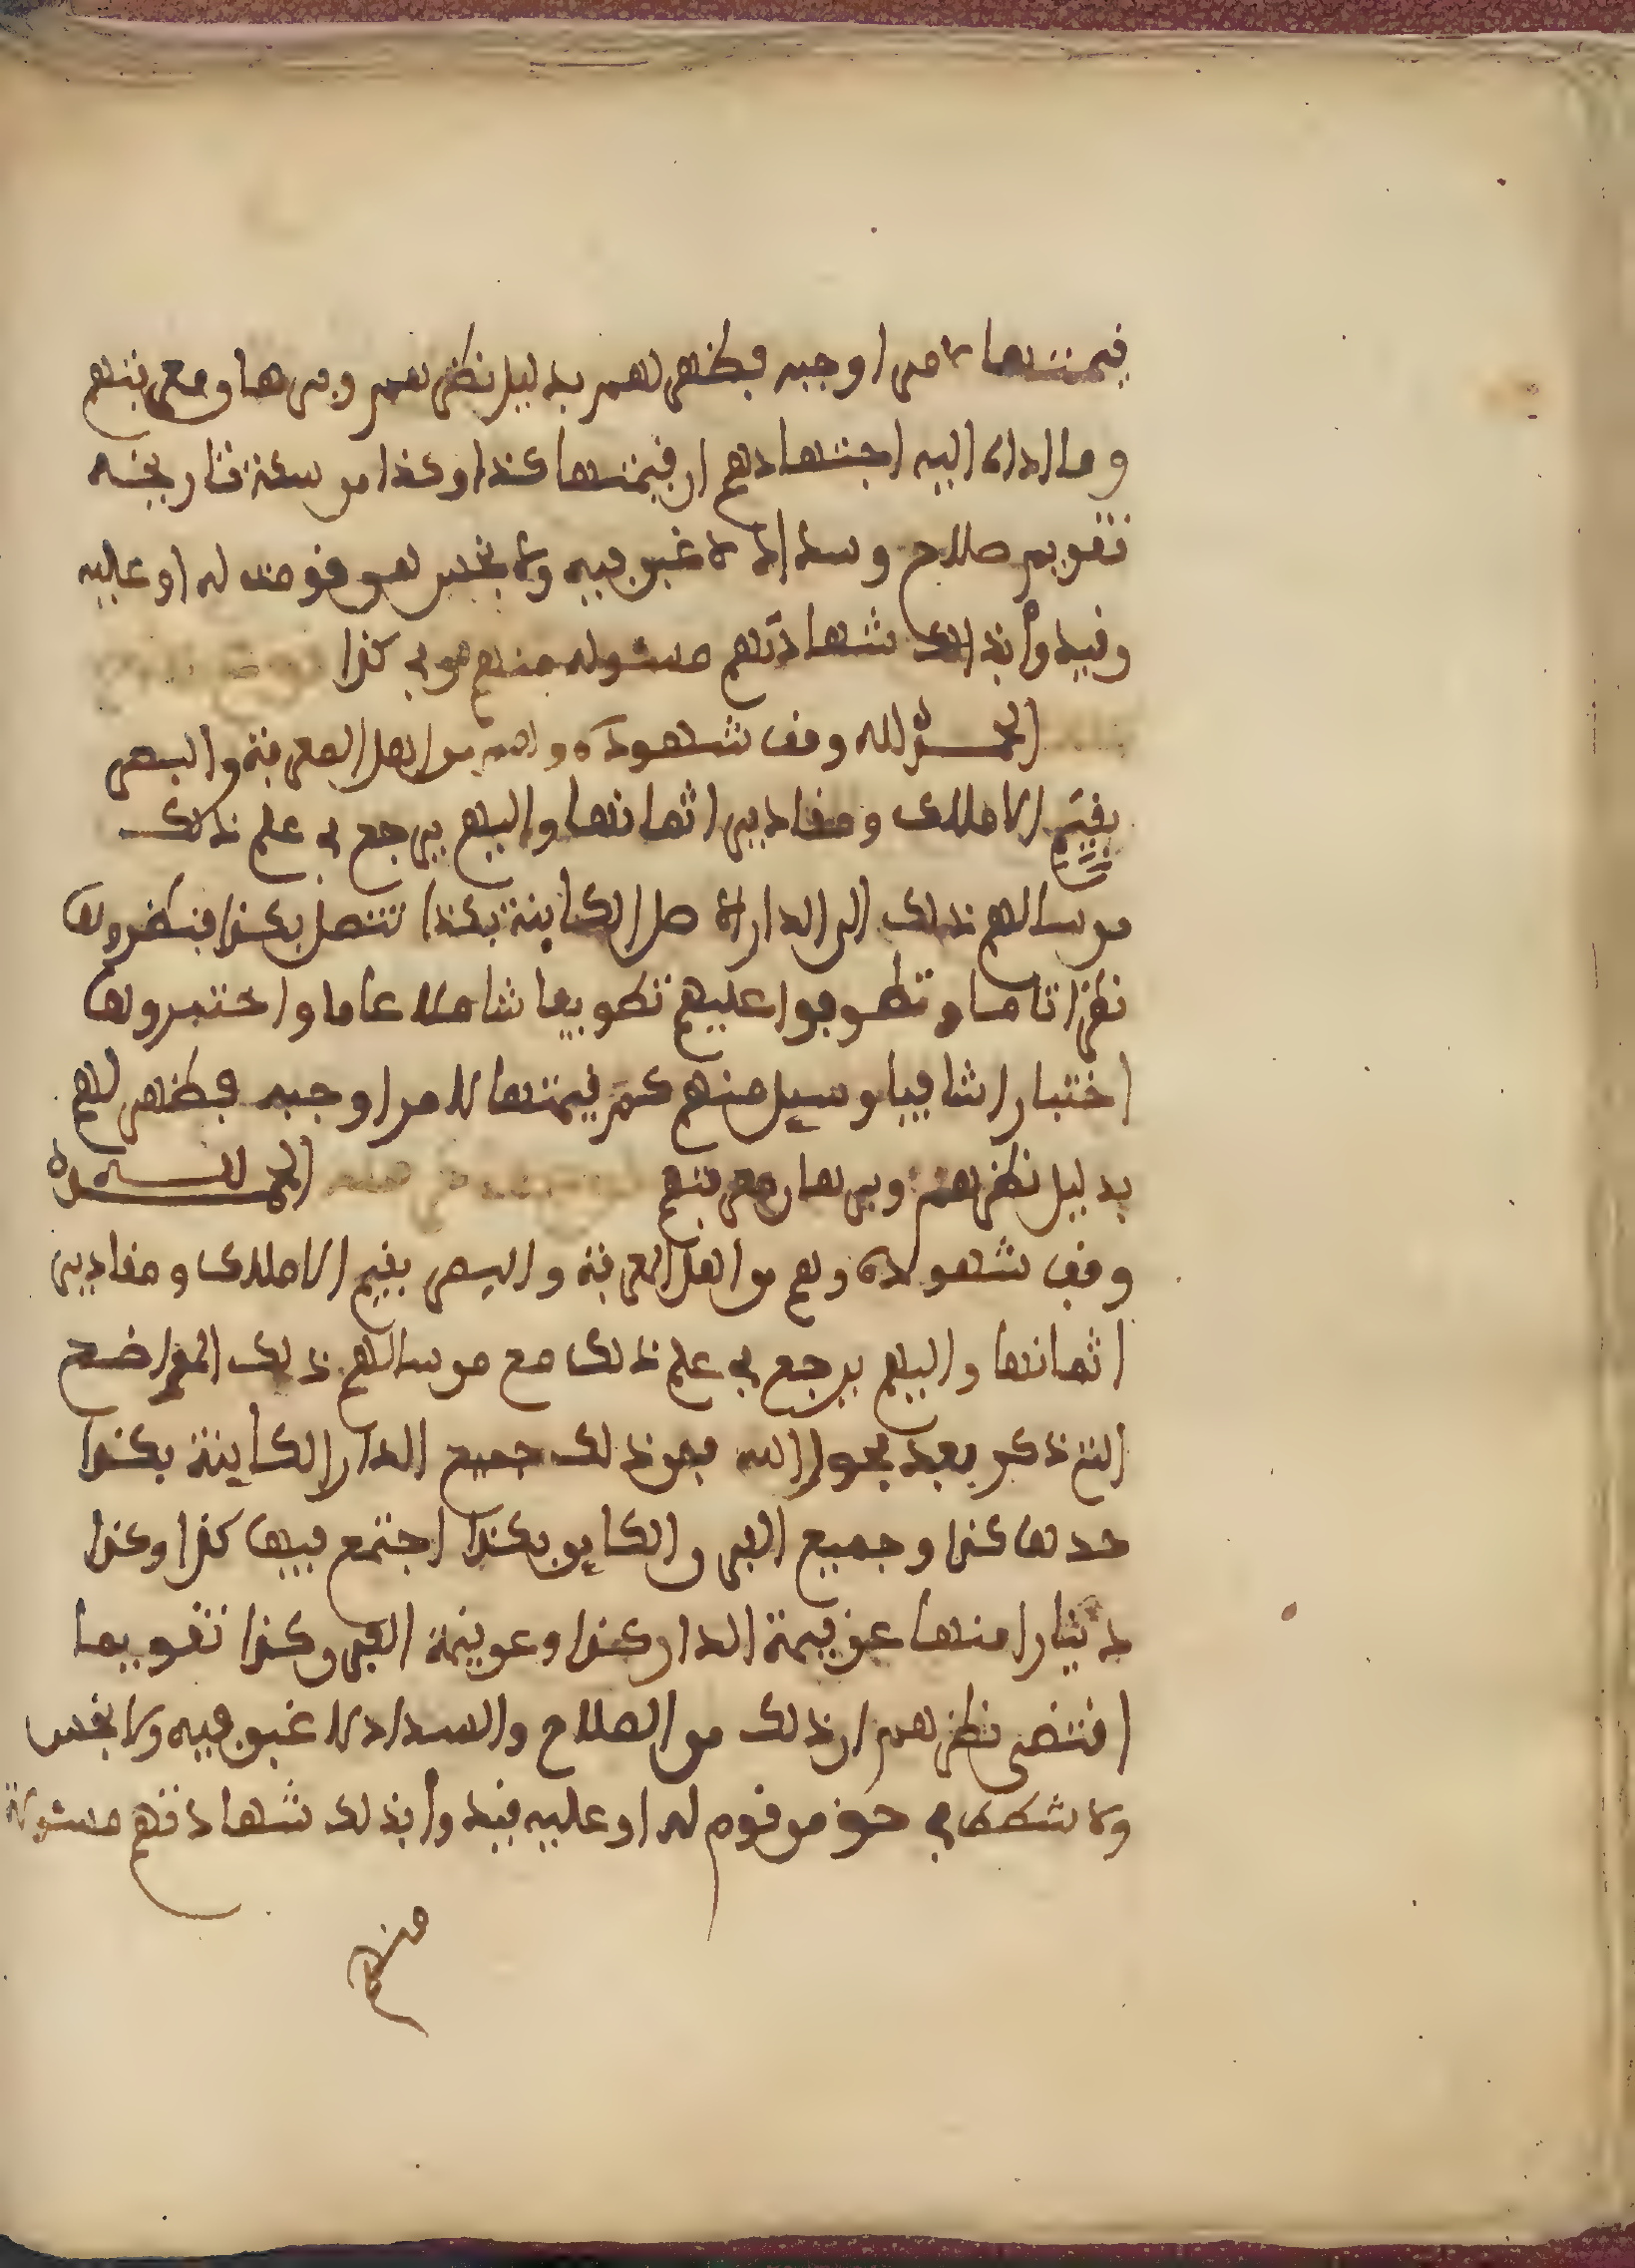 قيمتها لامر اوجبه فظهر لهم بدليل نظرهم وبرها ومعرفتهم
وما اداه اليه اجتهادهم ان قيمتها كذا وكذا من سكة تاريخه
تقويم صلاح وسداد لا غبن فيه ولا بخس هو قومت له او عليه
وقيدوا بذالك شهادتهم مسئوله منهم في كذا
الحمد لله وقف شهوده وهم من اهل المعرفة والبصر
بقيم الاملاك ومقادير اثمانها واليهم يرجع في علم ذلك
من سالهم ذلك الى الدار الاصل الكاينة بكذا تتصل بكذا فنظروها
نظرا تاما وتطوفوا عليهم تطويفا شاملا عاما واختبروها
اختبارا شافيا وسيل منهم كم قيمتها لامر اوجبه فظهر لهم
بدليل نظرهم وبرها ومعرفتهم الحمد لله
وقف شهوده وهم من اهل المعرفة والبصر بقيم الاملاك ومقادير
اثمانها واليهم يرجع في علم ذلك مع من سالهم ذلك المواضع
التي ذكر بعد بحول الله فمن ذلك جميع الدار الكاينة بكذا
حدها كذا وجميع الفرن الكاين بكذا اجتمع فيها كذا وكذا
دينارا منها عن قيمة الدار كذا وعن قيمة الفرن كذا تقويما
اقتضى نظرهم ان ذلك من الصلاح والسداد لا غبن فيه ولا بخس
ولا شطط في حق من قوم له او عليه قيدوا بذلك شهادتهم مسئولة
منهم